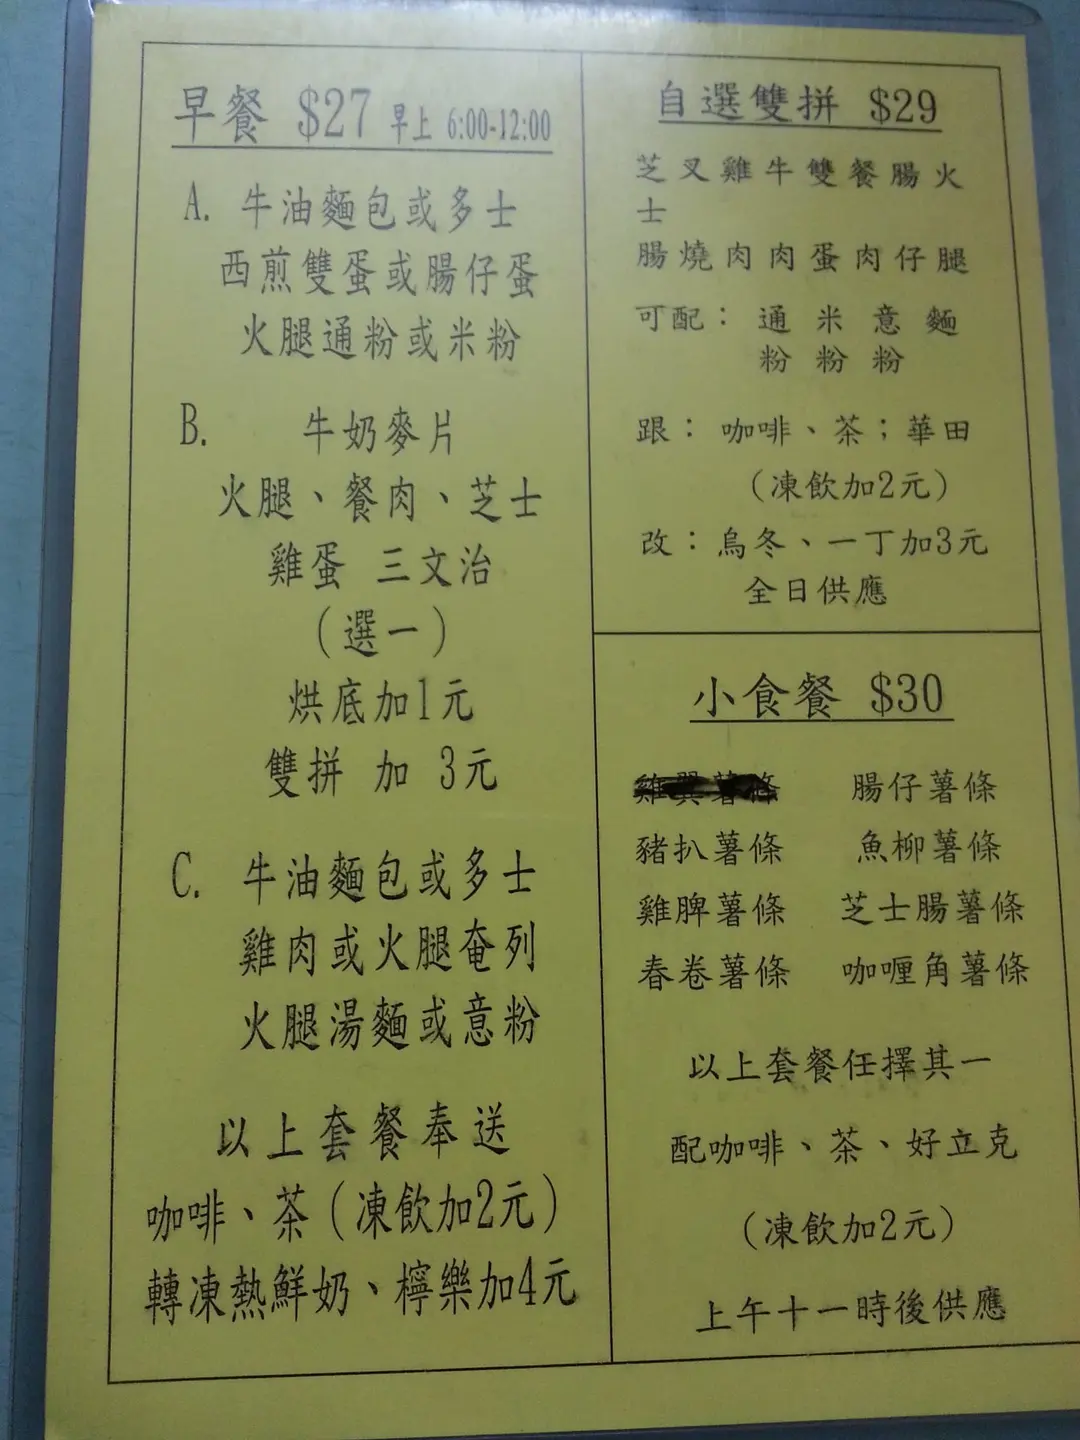 早餐 $27 早上 6:00-12:00
A. 牛油麵包或多士
西煎雙蛋或腸仔蛋
火腿通粉或米粉
B. 牛奶麥片
火腿、餐肉、芝士
雞蛋 三文治
(選一)
烘底加1元
雙拼 加 3元
C. 牛油麵包或多士
雞肉或火腿奄列
火腿湯麵或意粉
以上套餐奉送
咖啡、茶(凍飲加2元)
轉凍熱鮮奶、檸樂加4元
自選雙拼 $29
芝叉雞牛雙餐腸火
士
腸燒肉肉蛋肉仔腿
可配： 通 米 意 麵
粉 粉 粉
跟： 咖啡、茶；華田
(凍飲加2元)
改：烏冬、一丁加3元
全日供應
小食餐 $30
雞翼薯條 腸仔薯條
豬扒薯條 魚柳薯條
雞脾薯條 芝士腸薯條
春卷薯條 咖喱角薯條
以上套餐任擇其一
配咖啡、茶、好立克
(凍飲加2元)
上午十一時後供應